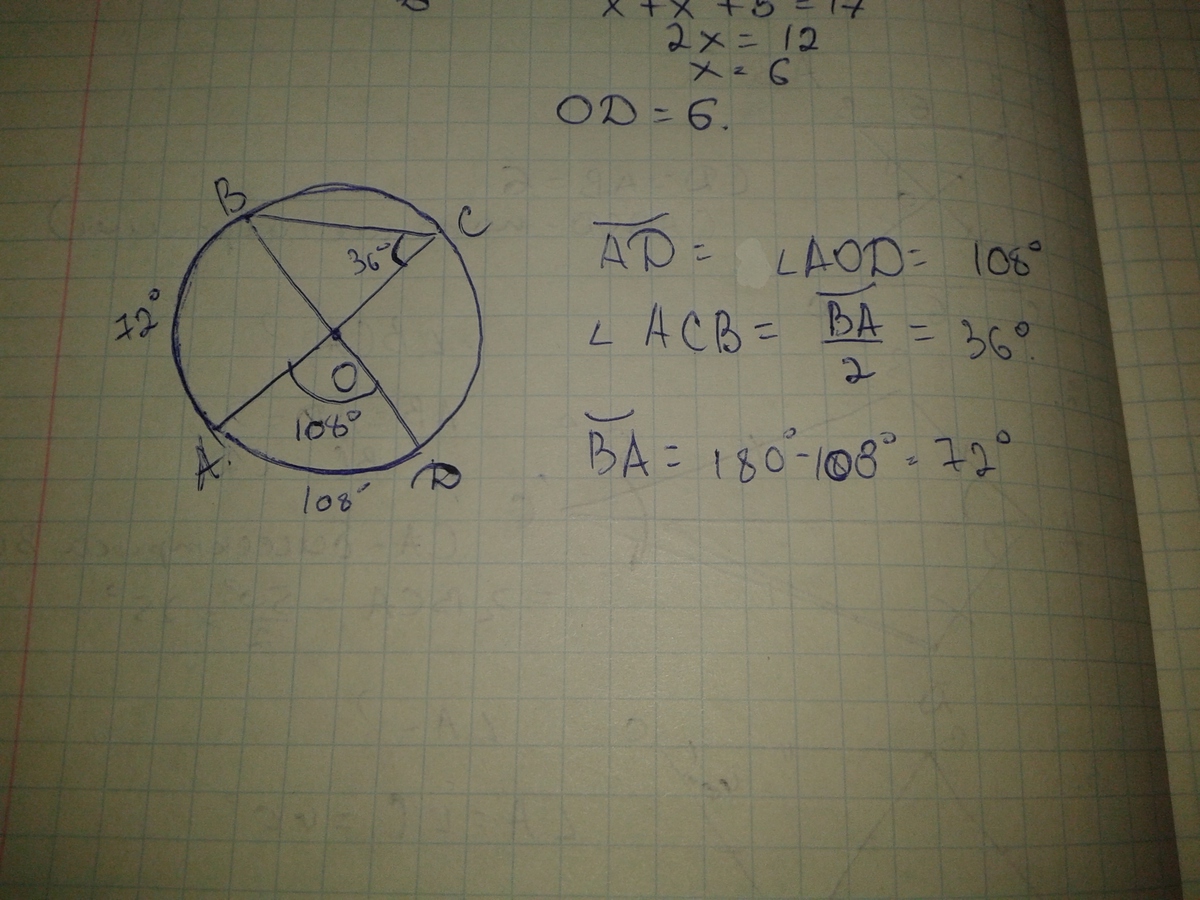 x + x + 5 = 17
2x = 12
x = 6
OD = 6.
B
C
36°
72°
O
108°
A
D
108°
AD = ∠AOD = 108°
∠ ACB = BA/2 = 36°.
BA = 180° - 108° = 72°